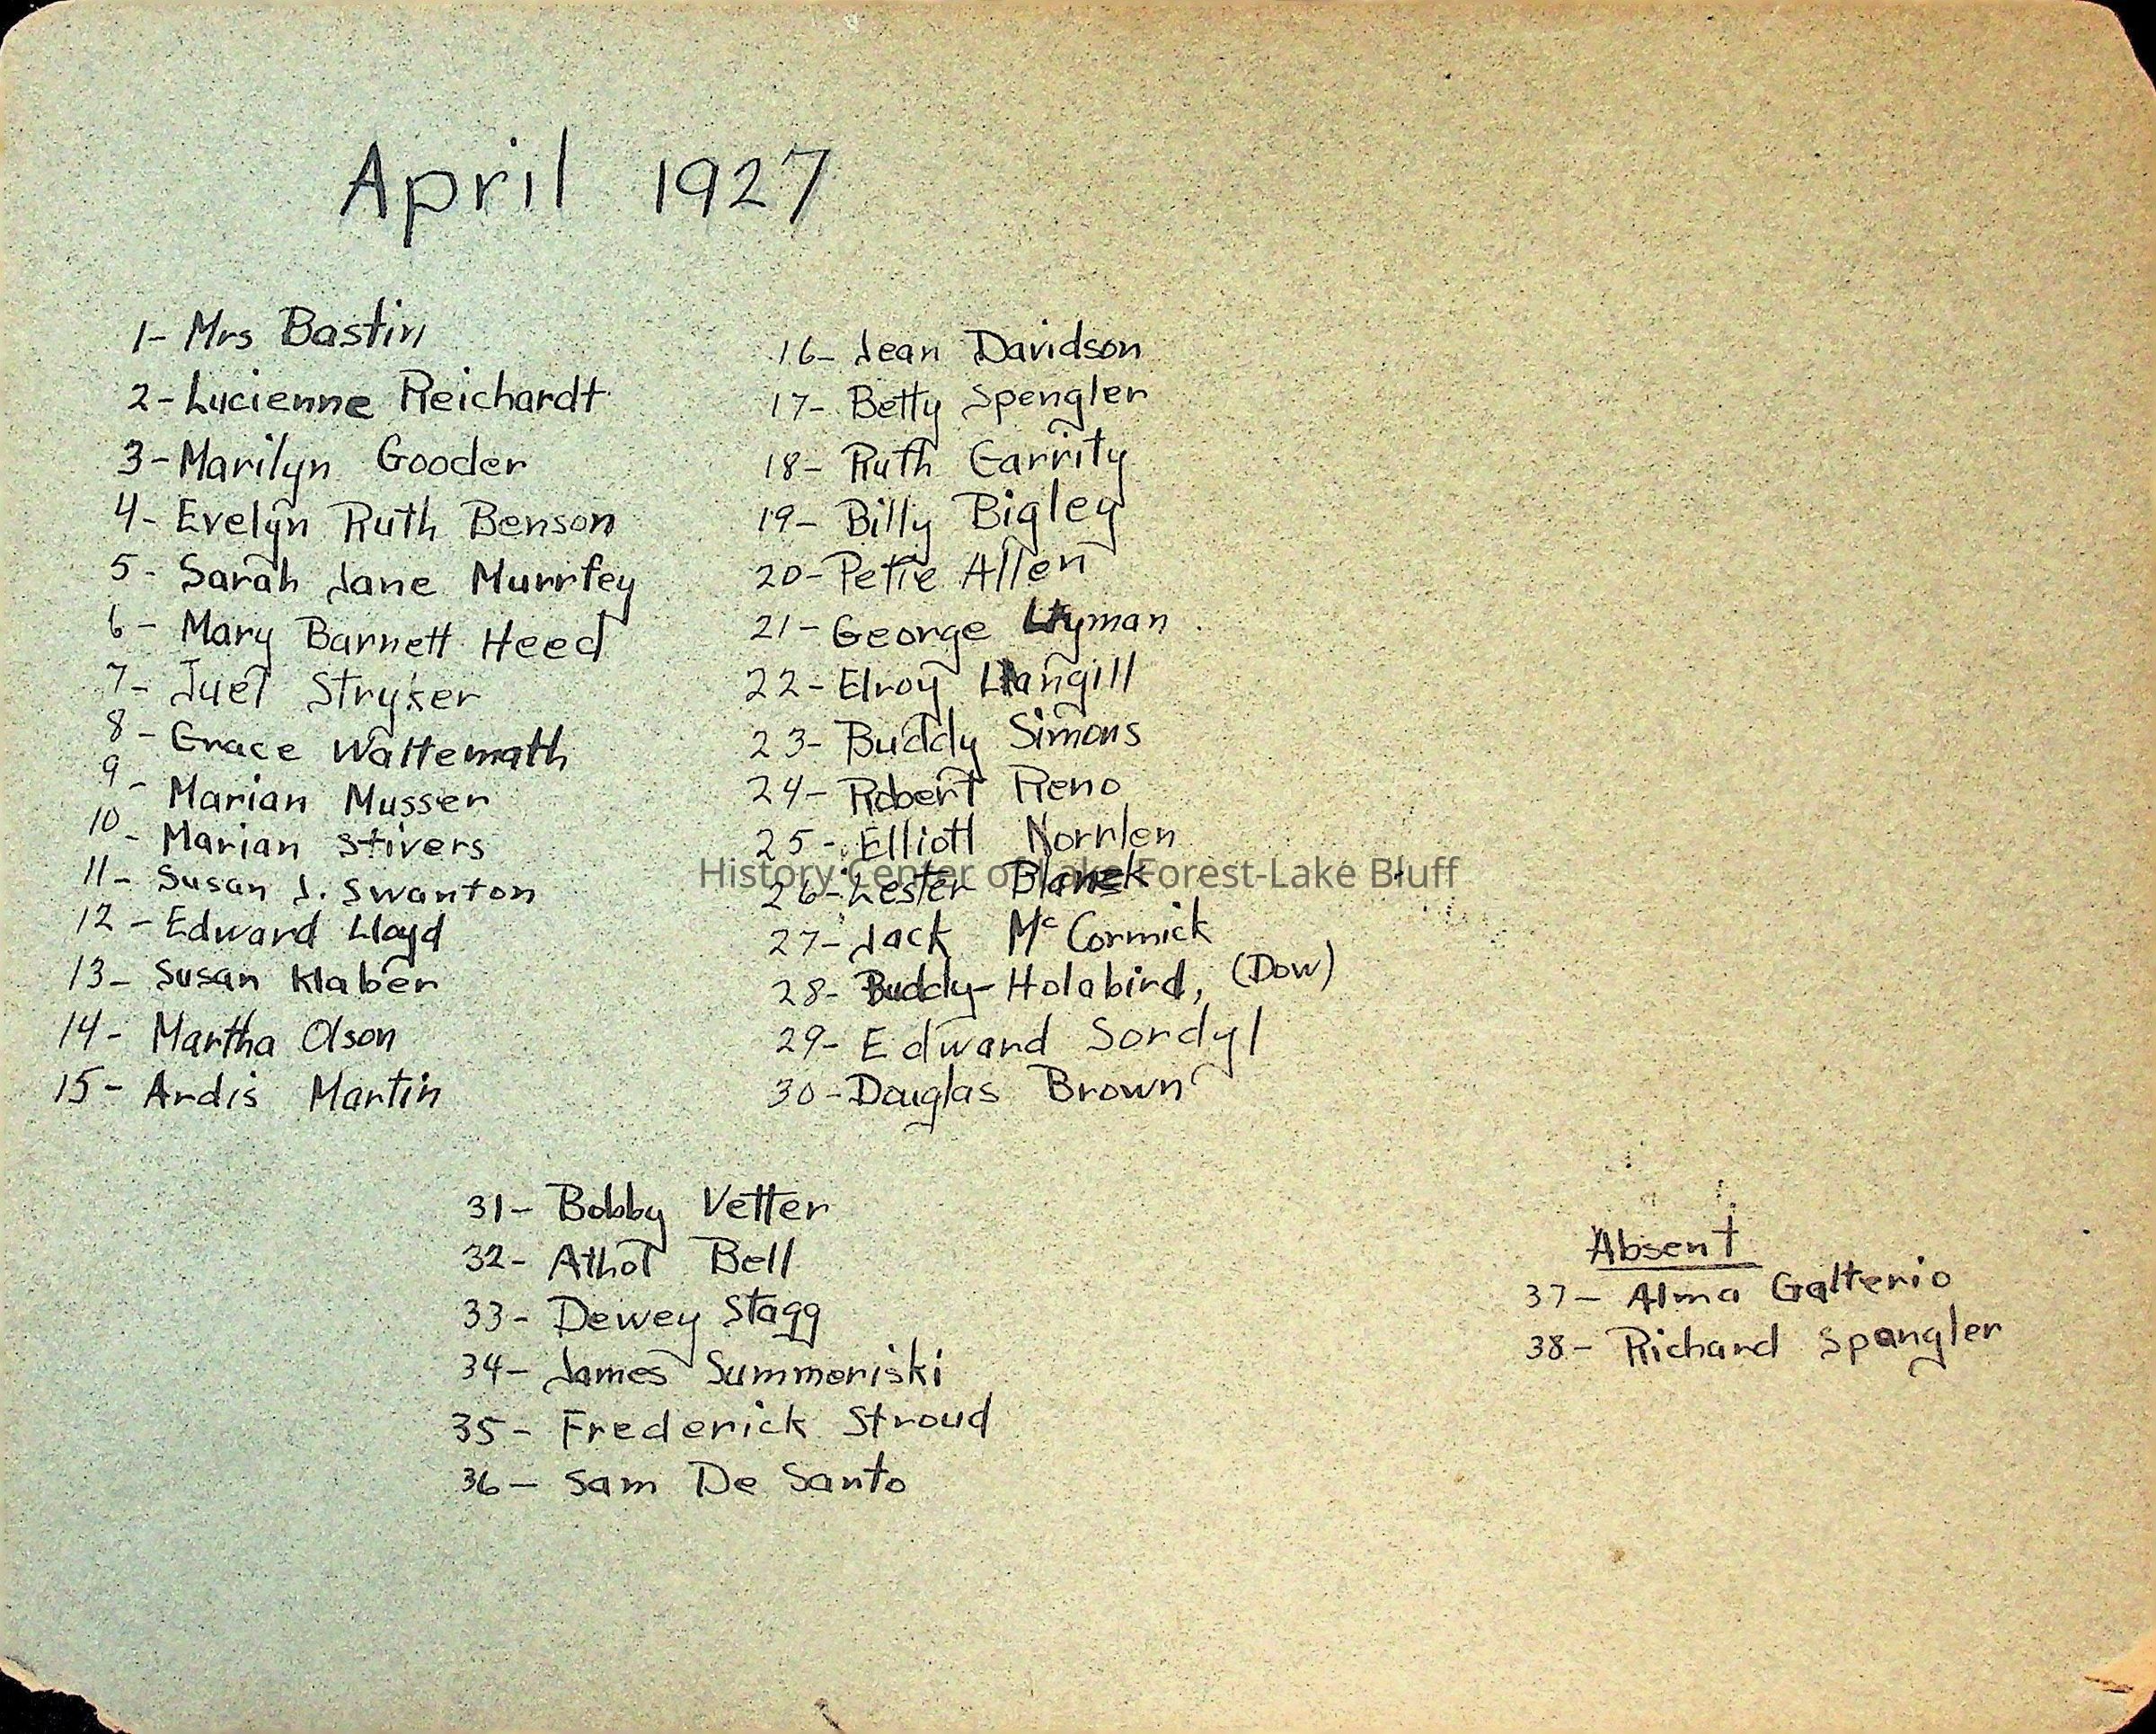 April 1927
1- Mrs Bastin
2- Lucienne Reichardt
3- Marilyn Gooder
4- Evelyn Ruth Benson
5- Sarah Jane Murrfey
6- Mary Barnett Heed
7- Juel Stryker
8- Grace Waltemath
9- Marian Musser
10- Marian Stivers
11- Susan J. Swanton
12- Edward Lloyd
13- Susan Klaber
14- Martha Olson
15- Ardis Martin
16- Jean Davidson
17- Betty Spengler
18- Ruth Garrity
19- Billy Bigley
20- Petie Allen
21- George Lyman
22- Elroy Langill
23- Buddy Simons
24- Robert Reno
25- Elliott Norrlen
26- Lester
27- Jack McCormick
28- Buddy- Holabird, (Dow)
29- Edward Sordyl
30- Douglas Brown
31- Bobby Vetter
32- Athol Bell
33- Dewey Stagg
34- James Summeriski
35- Frederick Stroud
36- Sam De Santo
Absent
37- Alma Galterio
38- Richard Spangler
History Center of Lake Forest-Lake Bluff